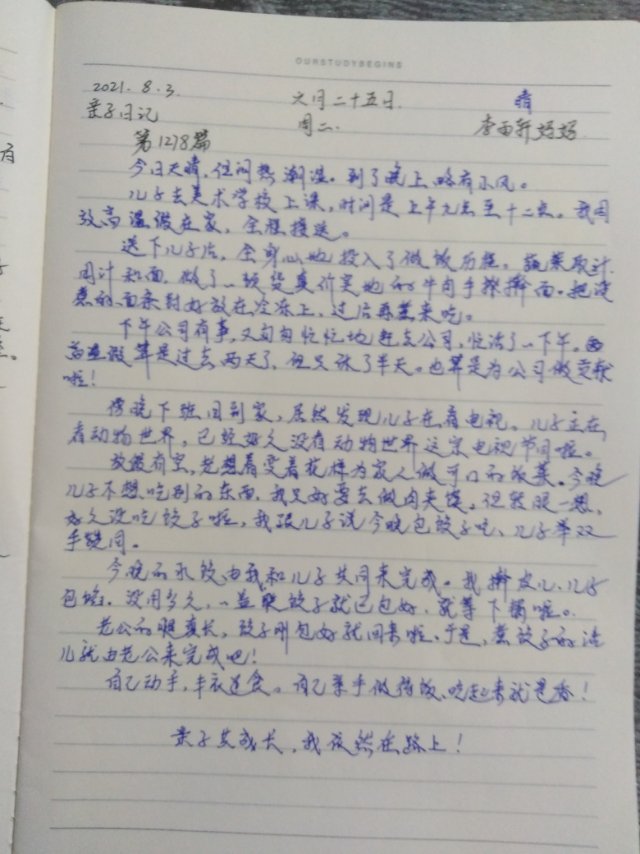 OURSTUDYBEGINS
2021.8.3. 六月二十五日. 晴
亲子日记 周二. 李雨轩妈妈.
第1278篇
今日天晴,但闷热潮湿。到了晚上略有小风。
儿子去美术学校上课,时间是上午九点至十二点。我因
放高温假在家,全程接送。
送下儿子后,全身心地投入了做饭历程。蔬菜取汁.
用汁和面,做了一顿货真价实地的牛肉手擀面。把没
煮的面条封好放在冷冻上,过后再煮来吃。
下午公司有事,又匆匆忙忙地赶去公司,忙活了一下午。
高温假算是过去两天了,但只休了半天。也算是为公司做贡献
啦!
傍晚下班回到家,居然发现儿子在看电视。儿子正在
看动物世界,已经好久没看动物世界这京电视节目啦。
放假有空,老想着变着花样为家人做可口的饭菜。今晚
儿子不想吃别的东西,我只好要去做肉夹馍。但转眼一想,
好久没吃饺子啦,我跟儿子说今晚包饺子吃,儿子举双
手赞同。
今晚的水饺由我和儿子共同来完成。我擀皮儿,儿子
包馅。没用多久,一盖联饺子就已包好,就等下锅啦。
老公的腿真长,饺子刚包好就回来啦。于是,煮饺子的活
儿就由老公来完成吧!
自己动手,丰衣足食。自己亲手做的饭,吃起来就是香!
亲子共成长,我依然在路上!